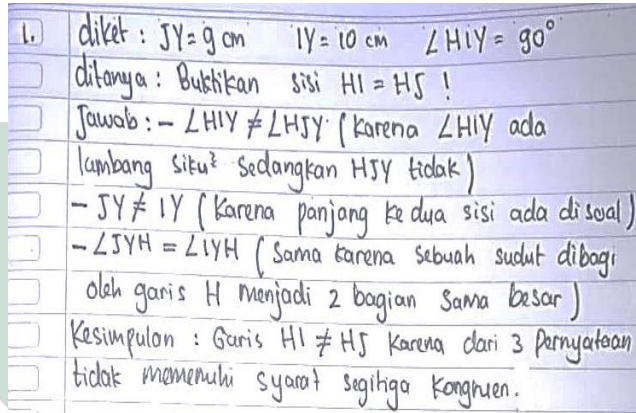 1. diket : JY = 9 cm IY = 10 cm ∠HIY = 90°
ditanya : Buktikan sisi HI = HJ !
Jawab : - ∠HIY ≠ ∠HJY (Karena ∠HIY ada
lambang siku² sedangkan HJY tidak)
- JY ≠ IY (Karena panjang ke dua sisi ada di soal)
- ∠JYH = ∠IYH (Sama karena sebuah sudut dibagi
oleh garis H menjadi 2 bagian sama besar)
Kesimpulan : Garis HI ≠ HJ Karena dari 3 Pernyataan
tidak memenuhi syarat segitiga kongruen.